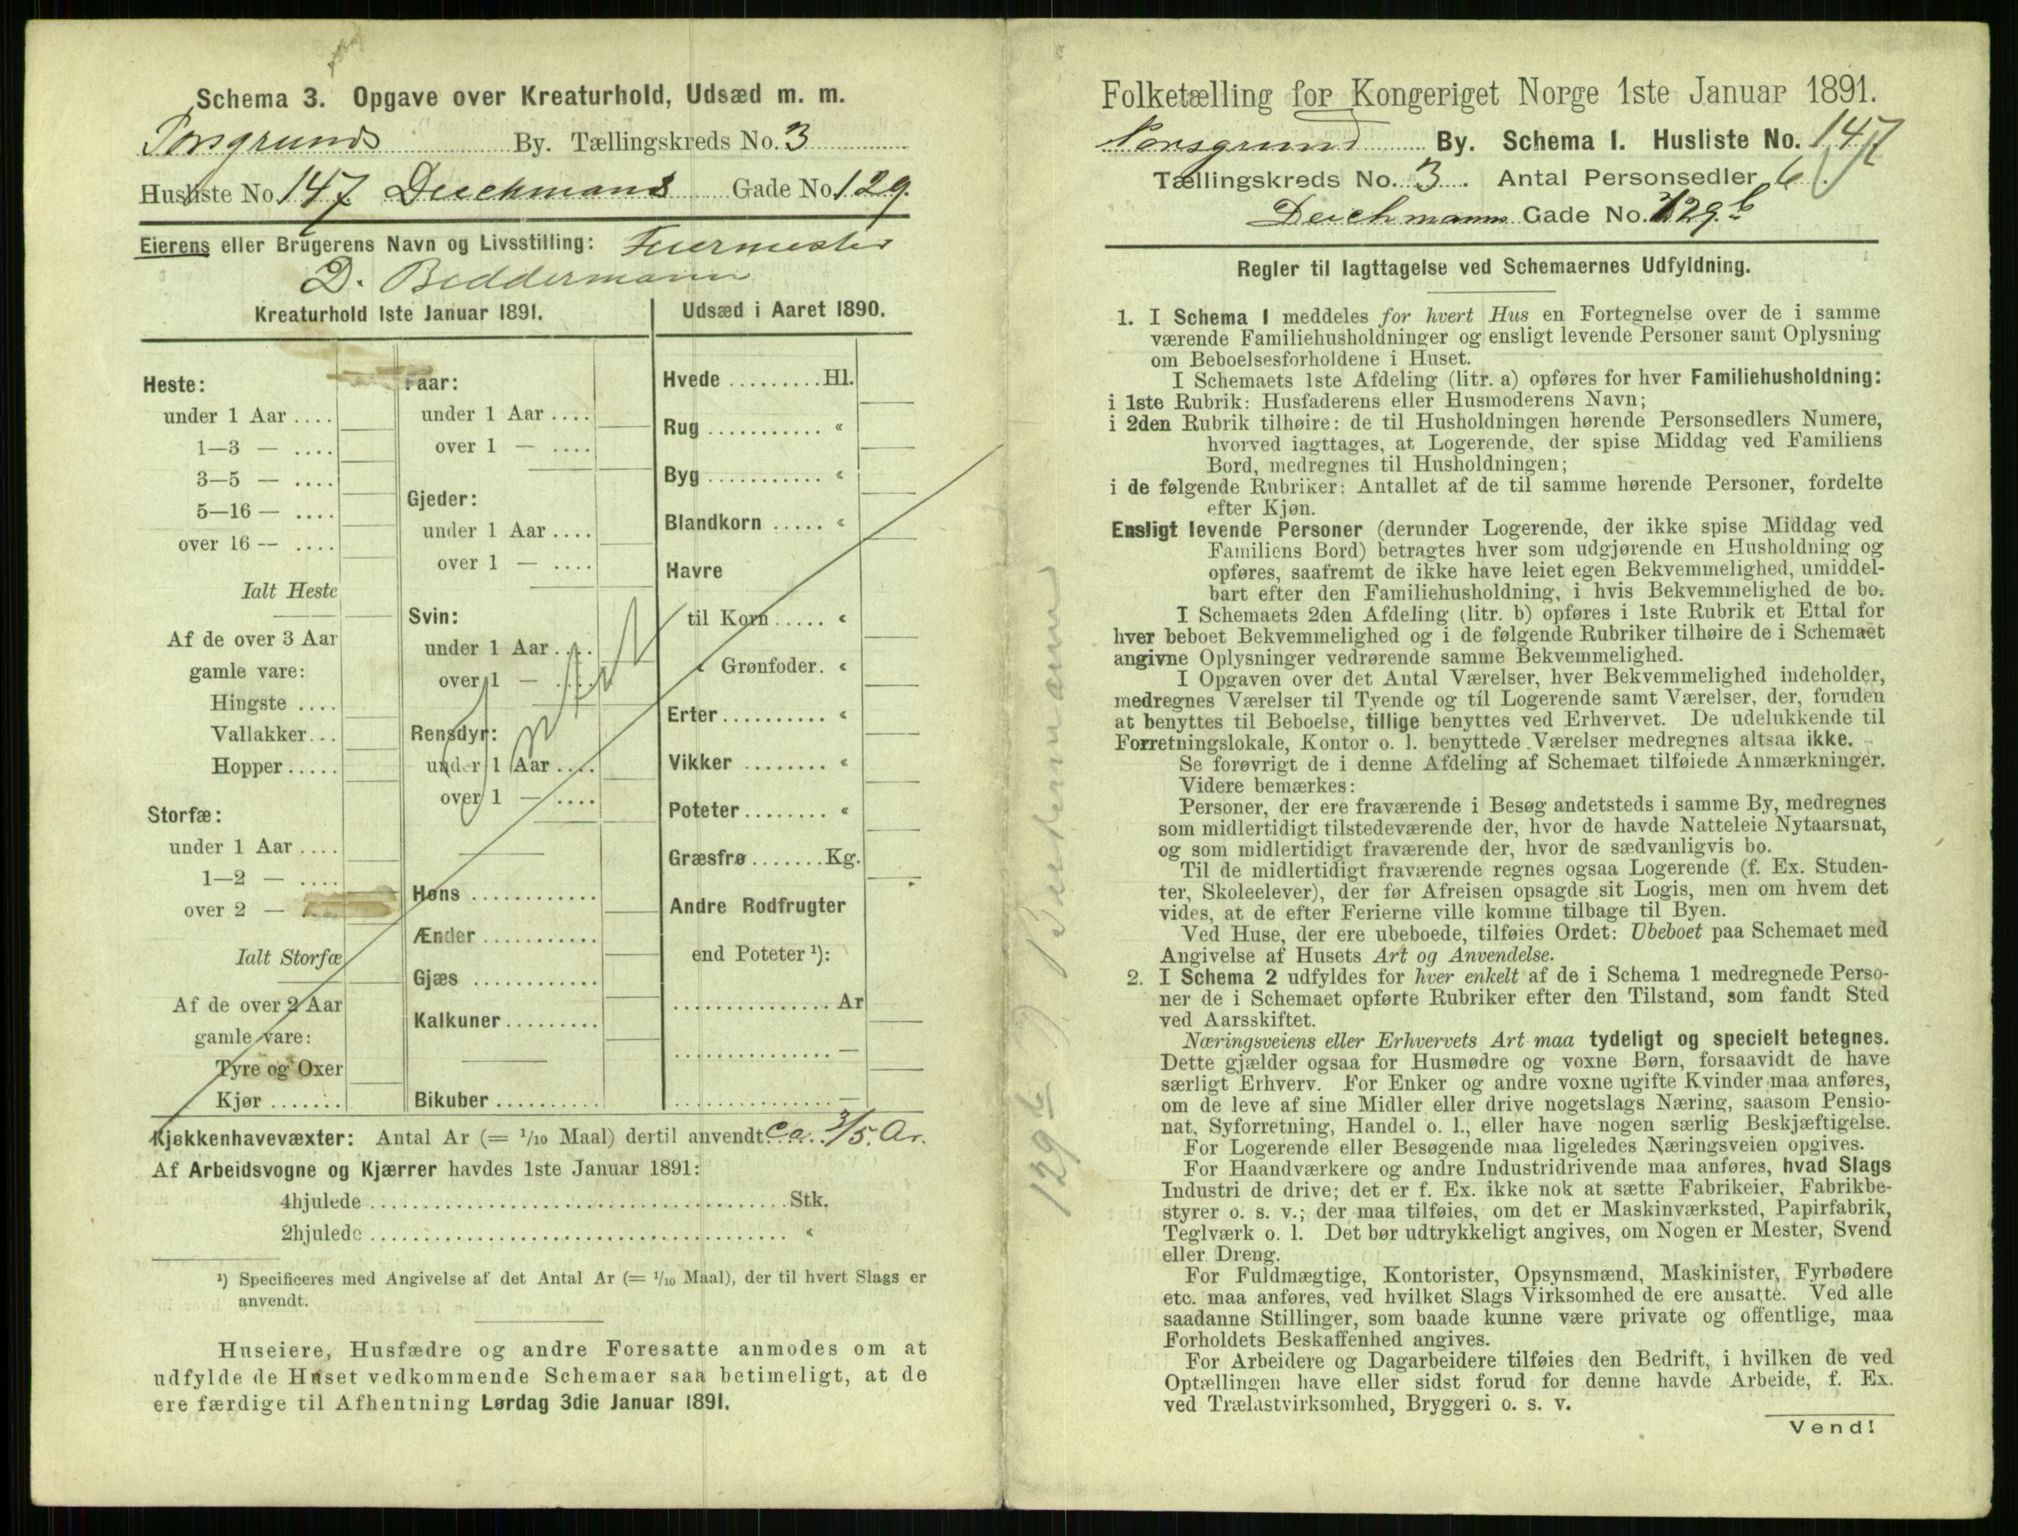 Schema 3. Opgave over Kreaturhold, Udsæd m. m.
Porsgrunds By. Tællingskreds No. 3
Husliste No. 147. Deichmans Gade No. 129.
Eierens eller Brugerens Navn og Livsstilling: Feiermester
D. Beddermann
Kreaturhold 1ste Januar 1891.
Heste:
under 1 Aar ....
1—3 — ....
3—5 — ....
5—16 — ....
over 16 — ....
Ialt Heste
Af de over 3 Aar
gamle vare:
Hingste ....
Vallakker...
Hopper.....
Storfæ:
under 1 Aar ....
1—2 — ....
over 2 —
Ialt Storfæ
Af de over 2 Aar
gamle vare:
Tyre og Oxer
Kjør .......
Faar:
under 1 Aar ....
over 1 — ....
Gjeder:
under 1 Aar ....
over 1 — ....
Svin:
under 1 Aar ....
over 1 — ....
Rensdyr:
under 1 Aar ....
over 1 — ....
Høns ............
Ænder ...........
Gjæs ............
Kalkuner.........
Bikuber ..........
Udsæd i Aaret 1890.
Hvede .........Hl.
Rug ........... «
Byg ........... «
Blandkorn ..... «
Havre
til Korn ..... «
« Grønfoder. «
Erter.......... «
Vikker ........ «
Poteter........ «
Græsfrø .......Kg.
Andre Rodfrugter
end Poteter ¹):
............... Ar
............... —
............... —
Kjøkkenhavevæxter: Antal Ar (= 1/10 Maal) dertil anvendt ca. 3/5. Ar.
Af Arbeidsvogne og Kjærrer havdes 1ste Januar 1891:
4hjulede ..................................... Stk.
2hjulede ..................................... «
¹) Specificeres med Angivelse af det Antal Ar (= 1/10 Maal), der til hvert Slags er
anvendt.
Huseiere, Husfædre og andre Foresatte anmodes om at
udfylde de Huset vedkommende Schemaer saa betimeligt, at de
ere færdige til Afhentning Lørdag 3die Januar 1891.
129 b D. Beddermann
Folketælling for Kongeriget Norge 1ste Januar 1891.
Porsgrund By. Schema I. Husliste No. 147
Tællingskreds No. 3. Antal Personsedler 6
Deichmanns Gade No. 129 b
Regler til Iagttagelse ved Schemaernes Udfyldning.
1. I Schema 1 meddeles for hvert Hus en Fortegnelse over de i samme
værende Familiehusholdninger og ensligt levende Personer samt Oplysning
om Beboelsesforholdene i Huset.
I Schemaets 1ste Afdeling (litr. a) opføres for hver Familiehusholdning:
i 1ste Rubrik: Husfaderens eller Husmoderens Navn;
i 2den Rubrik tilhøire: de til Husholdningen hørende Personsedlers Numere,
hvorved iagttages, at Logerende, der spise Middag ved Familiens
Bord, medregnes til Husholdningen;
i de følgende Rubriker: Antallet af de til samme hørende Personer, fordelte
efter Kjøn.
Ensligt levende Personer (derunder Logerende, der ikke spise Middag ved
Familiens Bord) betragtes hver som udgjørende en Husholdning og
opføres, saafremt de ikke have leiet egen Bekvemmelighed, umiddel-
bart efter den Familiehusholdning, i hvis Bekvemmelighed de bo.
I Schemaets 2den Afdeling (litr. b) opføres i 1ste Rubrik et Ettal for
hver beboet Bekvemmelighed og i de følgende Rubriker tilhøire de i Schemaet
angivne Oplysninger vedrørende samme Bekvemmelighed.
I Opgaven over det Antal Værelser, hver Bekvemmelighed indeholder,
medregnes Værelser til Tyende og til Logerende samt Værelser, der, foruden
at benyttes til Beboelse, tillige benyttes ved Erhvervet. De udelukkende til
Forretningslokale, Kontor o. l. benyttede Værelser medregnes altsaa ikke.
Se forøvrigt de i denne Afdeling af Schemaet tilføiede Anmærkninger.
Videre bemærkes:
Personer, der ere fraværende i Besøg andetsteds i samme By, medregnes
som midlertidigt tilstedeværende der, hvor de havde Natteleie Nytaarsnat,
og som midlertidigt fraværende der, hvor de sædvanligvis bo.
Til de midlertidigt fraværende regnes ogsaa Logerende (f. Ex. Studen-
ter, Skoleelever), der før Afreisen opsagde sit Logis, men om hvem det
vides, at de efter Ferierne ville komme tilbage til Byen.
Ved Huse, der ere ubeboede, tilføies Ordet: Ubeboet paa Schemaet med
Angivelse af Husets Art og Anvendelse.
2. I Schema 2 udfyldes for hver enkelt af de i Schema 1 medregnede Perso-
ner de i Schemaet opførte Rubriker efter den Tilstand, som fandt Sted
ved Aarsskiftet.
Næringsveiens eller Erhvervets Art maa tydeligt og specielt betegnes.
Dette gjælder ogsaa for Husmødre og voxne Børn, forsaavidt de have
særligt Erhverv. For Enker og andre voxne ugifte Kvinder maa anføres,
om de leve af sine Midler eller drive nogetslags Næring, saasom Pensio-
nat, Syforretning, Handel o. l., eller have nogen særlig Beskjæftigelse.
For Logerende eller Besøgende maa ligeledes Næringsveien opgives.
For Haandværkere og andre Industridrivende maa anføres, hvad Slags
Industri de drive; det er f. Ex. ikke nok at sætte Fabrikeier, Fabrikbe-
styrer o. s. v.; der maa tilføies, om det er Maskinværksted, Papirfabrik,
Teglværk o. l. Det bør udtrykkeligt angives, om Nogen er Mester, Svend
eller Dreng.
For Fuldmægtige, Kontorister, Opsynsmænd, Maskinister, Fyrbødere
etc. maa anføres, ved hvilket Slags Virksomhed de ere ansatte. Ved alle
saadanne Stillinger, som baade kunne være private og offentlige, maa
Forholdets Beskaffenhed angives.
For Arbeidere og Dagarbeidere tilføies den Bedrift, i hvilken de ved
Optællingen have eller sidst forud for denne havde Arbeide, f. Ex.
ved Trælastvirksomhed, Bryggeri o. s. v.
Vend!